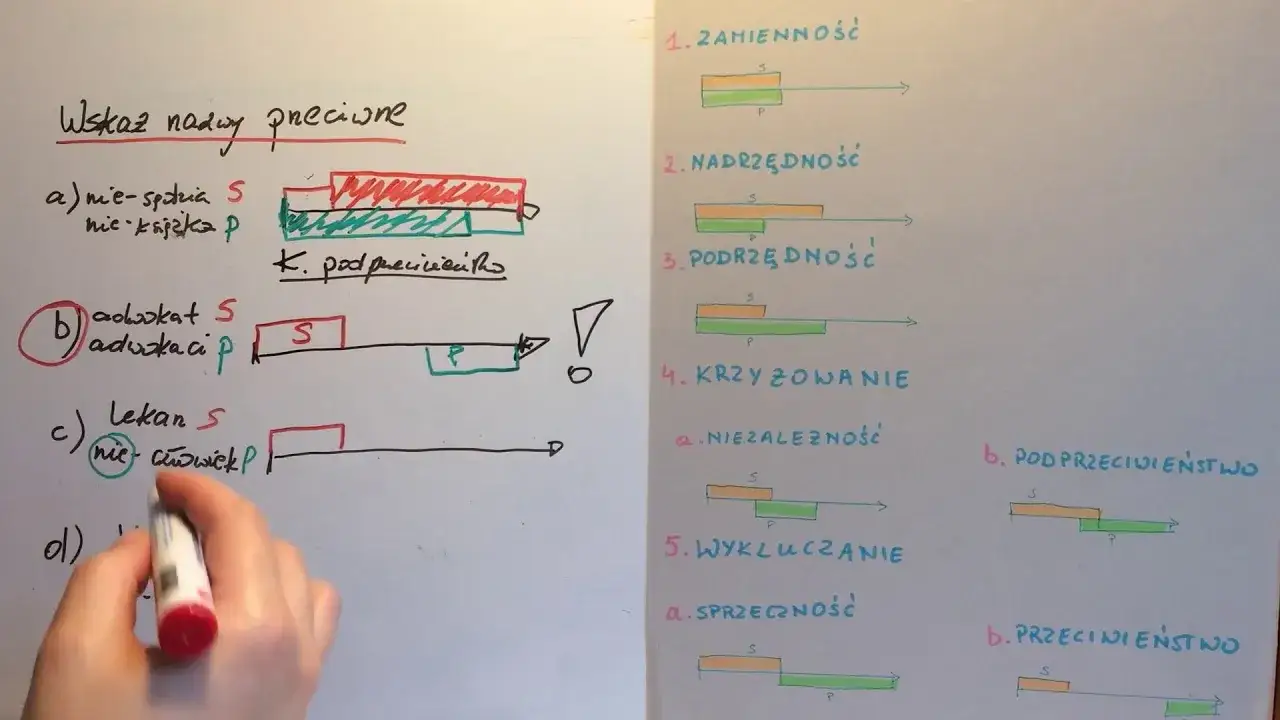 Wskaż nazwy przeciwne
a) nie-spódnica S
nie-książka P
K. podprzeciwieństwo
b) adwokat S
adwokaci P
S
P
!
c) lekarz S
nie-człowiek P
d)
1. ZAMIENNOŚĆ
S
P
2. NADRZĘDNOŚĆ
S
P
3. PODRZĘDNOŚĆ
S
P
4. KRZYŻOWANIE
a. NIEZALEŻNOŚĆ
S
P
b. PODPRZECIWIEŃSTWO
S
P
5. WYKLUCZANIE
a. SPRZECZNOŚĆ
S
P
b. PRZECIWIEŃSTWO
S